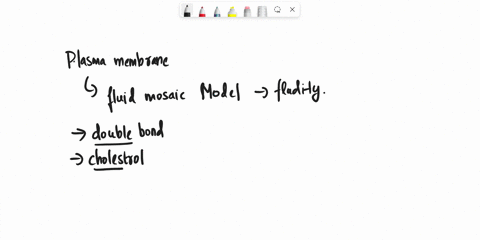 Plasma membrane
↳ fluid mosaic Model → fluidity.
→ double bond
→ cholestrol